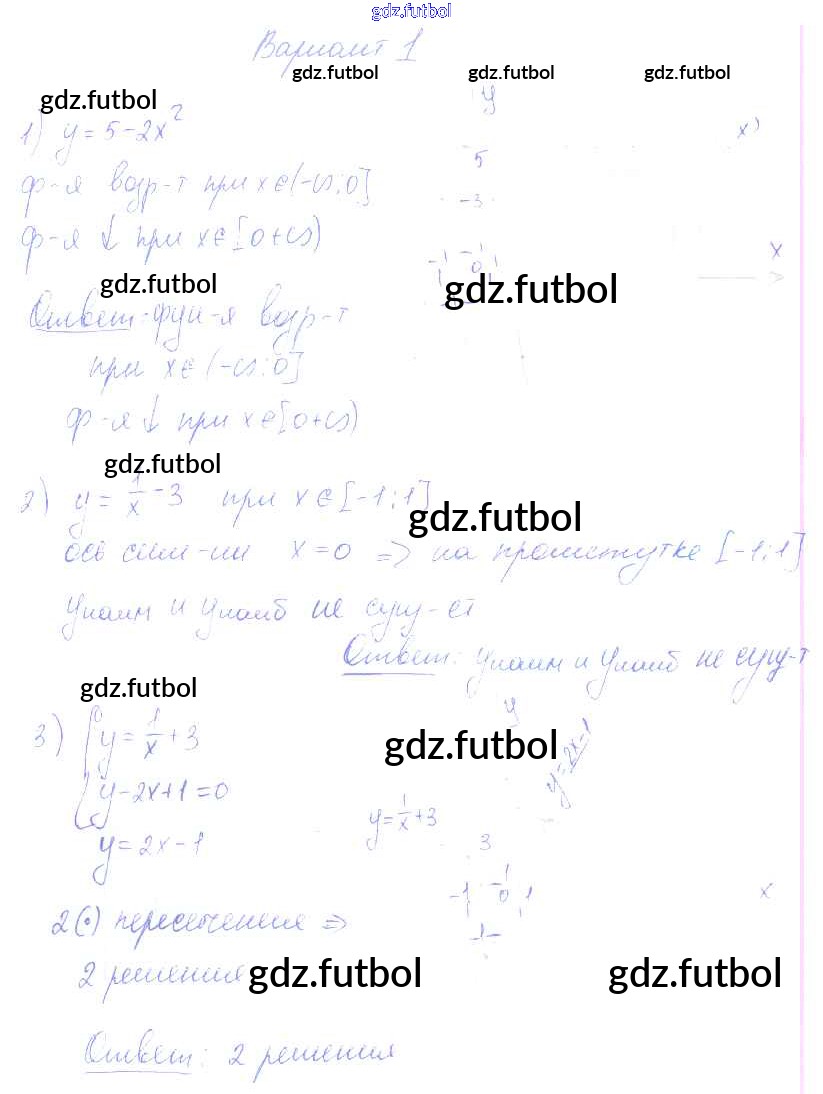 gdz.futbol
Вариант 1
gdz.futbol gdz.futbol gdz.futbol
gdz.futbol
1) y = 5 - 2x²
ф-я возр-т при x ∈ (-∞; 0]
ф-я ↓ при x ∈ [0 +∞)
y
x
5
-3
-1 -1 0 1
x
gdz.futbol
gdz.futbol
Ответ: фун-я возр-т
при x ∈ (-∞; 0]
ф-я ↓ при x ∈ [0 +∞)
gdz.futbol
2) y = 1/x - 3 при x ∈ [-1; 1]
gdz.futbol
ось сим-ии x = 0 => на промежутке [-1; 1]
yнаим и yнаиб не сущ-ет
Ответ: yнаим и yнаиб не сущ-т
gdz.futbol
3) { y = 1/x + 3
y - 2x + 1 = 0
y = 2x - 1
gdz.futbol
y
y = 2x - 1
y = 1/x + 3
3
-1 -1 0 1
x
-1
2 (·) пересечения =>
2 решения
gdz.futbol
gdz.futbol
Ответ: 2 решения